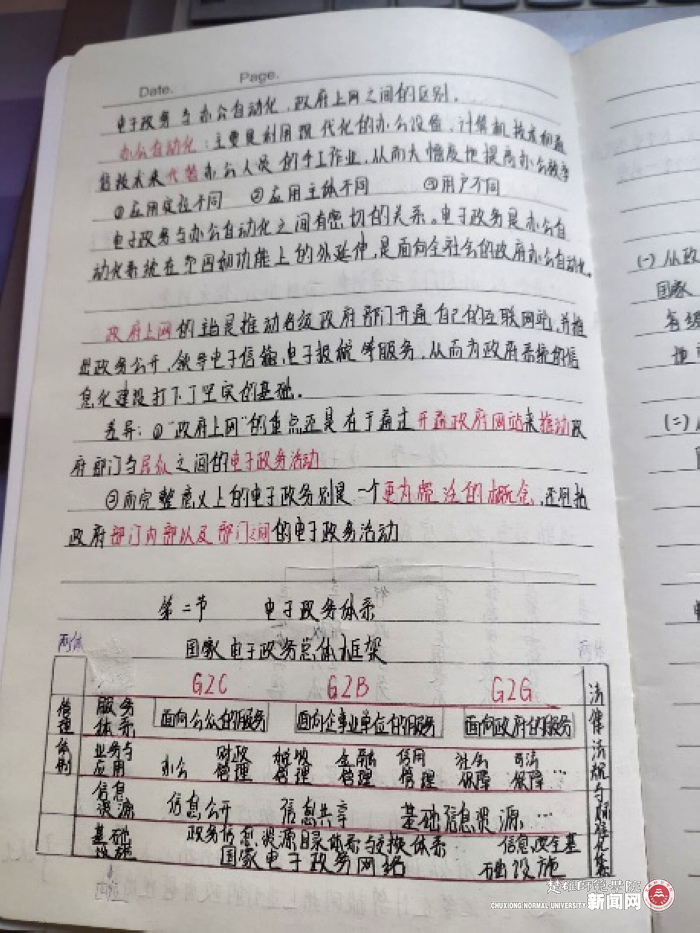 Date. Page.
电子政务与办公自动化、政府上网之间的区别。
办公自动化：主要是利用现代化的办公设备，计算机技术和通
信技术来代替办公人员的手工作业，从而大幅度地提高办公效率
①应用定位不同 ②应用主体不同 ③用户不同
电子政务与办公自动化之间有密切的关系。电子政务是办公自
动化系统在范围和功能上的外延伸，是面向全社会的政府办公自动化。
政府上网的主旨是推动各级政府部门开通自己的互联网站，并推
出政务公开，领导电子信箱、电子报税等服务，从而为政府系统的信
息化建设打下了坚实的基础。
差异：①“政府上网”的重点还是在于通过开通政府网站来推动政
府部门与民众之间的电子政务活动
②而完整意义上的电子政务则是一个更为宽泛的概念，还包括
政府部门内部以及部门之间的电子政务活动
第二节 电子政务体系
国家电子政务总体框架
两体 两体
G2C G2B G2G
管理体制
服务体系 面向公众的服务 面向企事业单位的服务 面向政府的服务
业务与应用 办公 财政管理 税收管理 金融管理 信用管理 社会保障 司法保障…
信息资源 信息公开 信息共享 基础信息资源…
基础设施 政务信息资源目录体系与交换体系 信息安全基
国家电子政务网络 础设施
法律法规与标准化体系
(一) 从政
国家
各级
地
(二)
楚雄师范学院
CHUXIONG NORMAL UNIVERSITY 新闻网